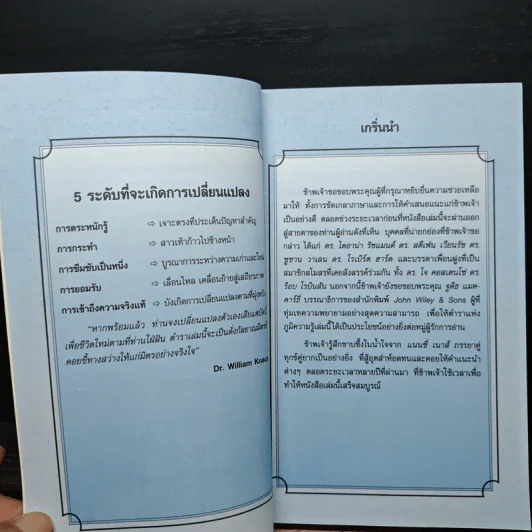 5 ระดับที่จะเกิดการเปลี่ยนแปลง
การตระหนักรู้ ⇨ เจาะตรงที่ประเด็นปัญหาสำคัญ
การกระทำ ⇨ สาวเท้าก้าวไปข้างหน้า
การซึมซับเป็นหนึ่ง ⇨ บูรณาการระหว่างความเก่าและใหม่
การยอมรับ ⇨ เลื่อนไหล เคลื่อนย้ายสู่เสถียรภาพ
การเข้าถึงความจริงแท้ ⇨ บังเกิดการเปลี่ยนแปลงตามที่มุ่งหวัง
"หากพร้อมแล้ว ท่านจงเปลี่ยนแปลงตัวเองเสียแต่บัดนี้
เพื่อชีวิตใหม่ตามที่ท่านใฝ่ฝัน ตำราเล่มนี้จะเป็นดั่งกัลยาณมิตรที่
คอยชี้ทางสว่างให้แก่มิตรอย่างจริงใจ"
Dr. William Knaus
เกริ่นนำ
ข้าพเจ้าขอขอบพระคุณผู้ที่กรุณาหยิบยื่นความช่วยเหลือ
มาให้ ทั้งการขัดเกลาภาษาและการให้คำเสนอแนะแก่ข้าพเจ้า
เป็นอย่างดี ตลอดช่วงระยะเวลาก่อนที่หนังสือเล่มนี้จะผ่านออก
สู่สายตาของท่านผู้อ่านดังที่เห็น บุคคลที่น่ายกย่องที่ข้าพเจ้าขอ
กล่าว ได้แก่ ดร. ไดอาน่า ริชแมนด์ ดร. สตีเฟ่น เวียนรัช ดร.
ซูซาน วาเลน ดร. โรเบิร์ต ฮาร์ด และบรรดาเพื่อนฝูงที่เป็น
สมาชิกสโมสรที่เคยสังสรรค์ร่วมกัน ทั้ง ดร. โจ คอสเตนโซ่ ดร.
ร็อบ โรบินสัน นอกจากนี้ข้าพเจ้ายังขอขอบพระคุณ จูดิธ แมค-
คาร์ธี่ บรรณาธิการของสำนักพิมพ์ John Wiley & Sons ผู้ที่
ทุ่มเทความพยายามอย่างสุดความสามารถ เพื่อให้ตำราแห่ง
ภูมิความรู้เล่มนี้ได้เป็นประโยชน์อย่างยิ่งต่อหมู่ผู้รักการอ่าน
ข้าพเจ้ารู้สึกซาบซึ้งในน้ำใจจาก แนนซี่ เนาส์ ภรรยาคู่
ทุกข์คู่ยากเป็นอย่างยิ่ง ที่สู้อุตส่าห์อดทนและคอยให้คำแนะนำ
ต่างๆ ตลอดระยะเวลาหลายปีที่ผ่านมา ที่ข้าพเจ้าใช้เวลาเพื่อ
ทำให้หนังสือเล่มนี้เสร็จสมบูรณ์